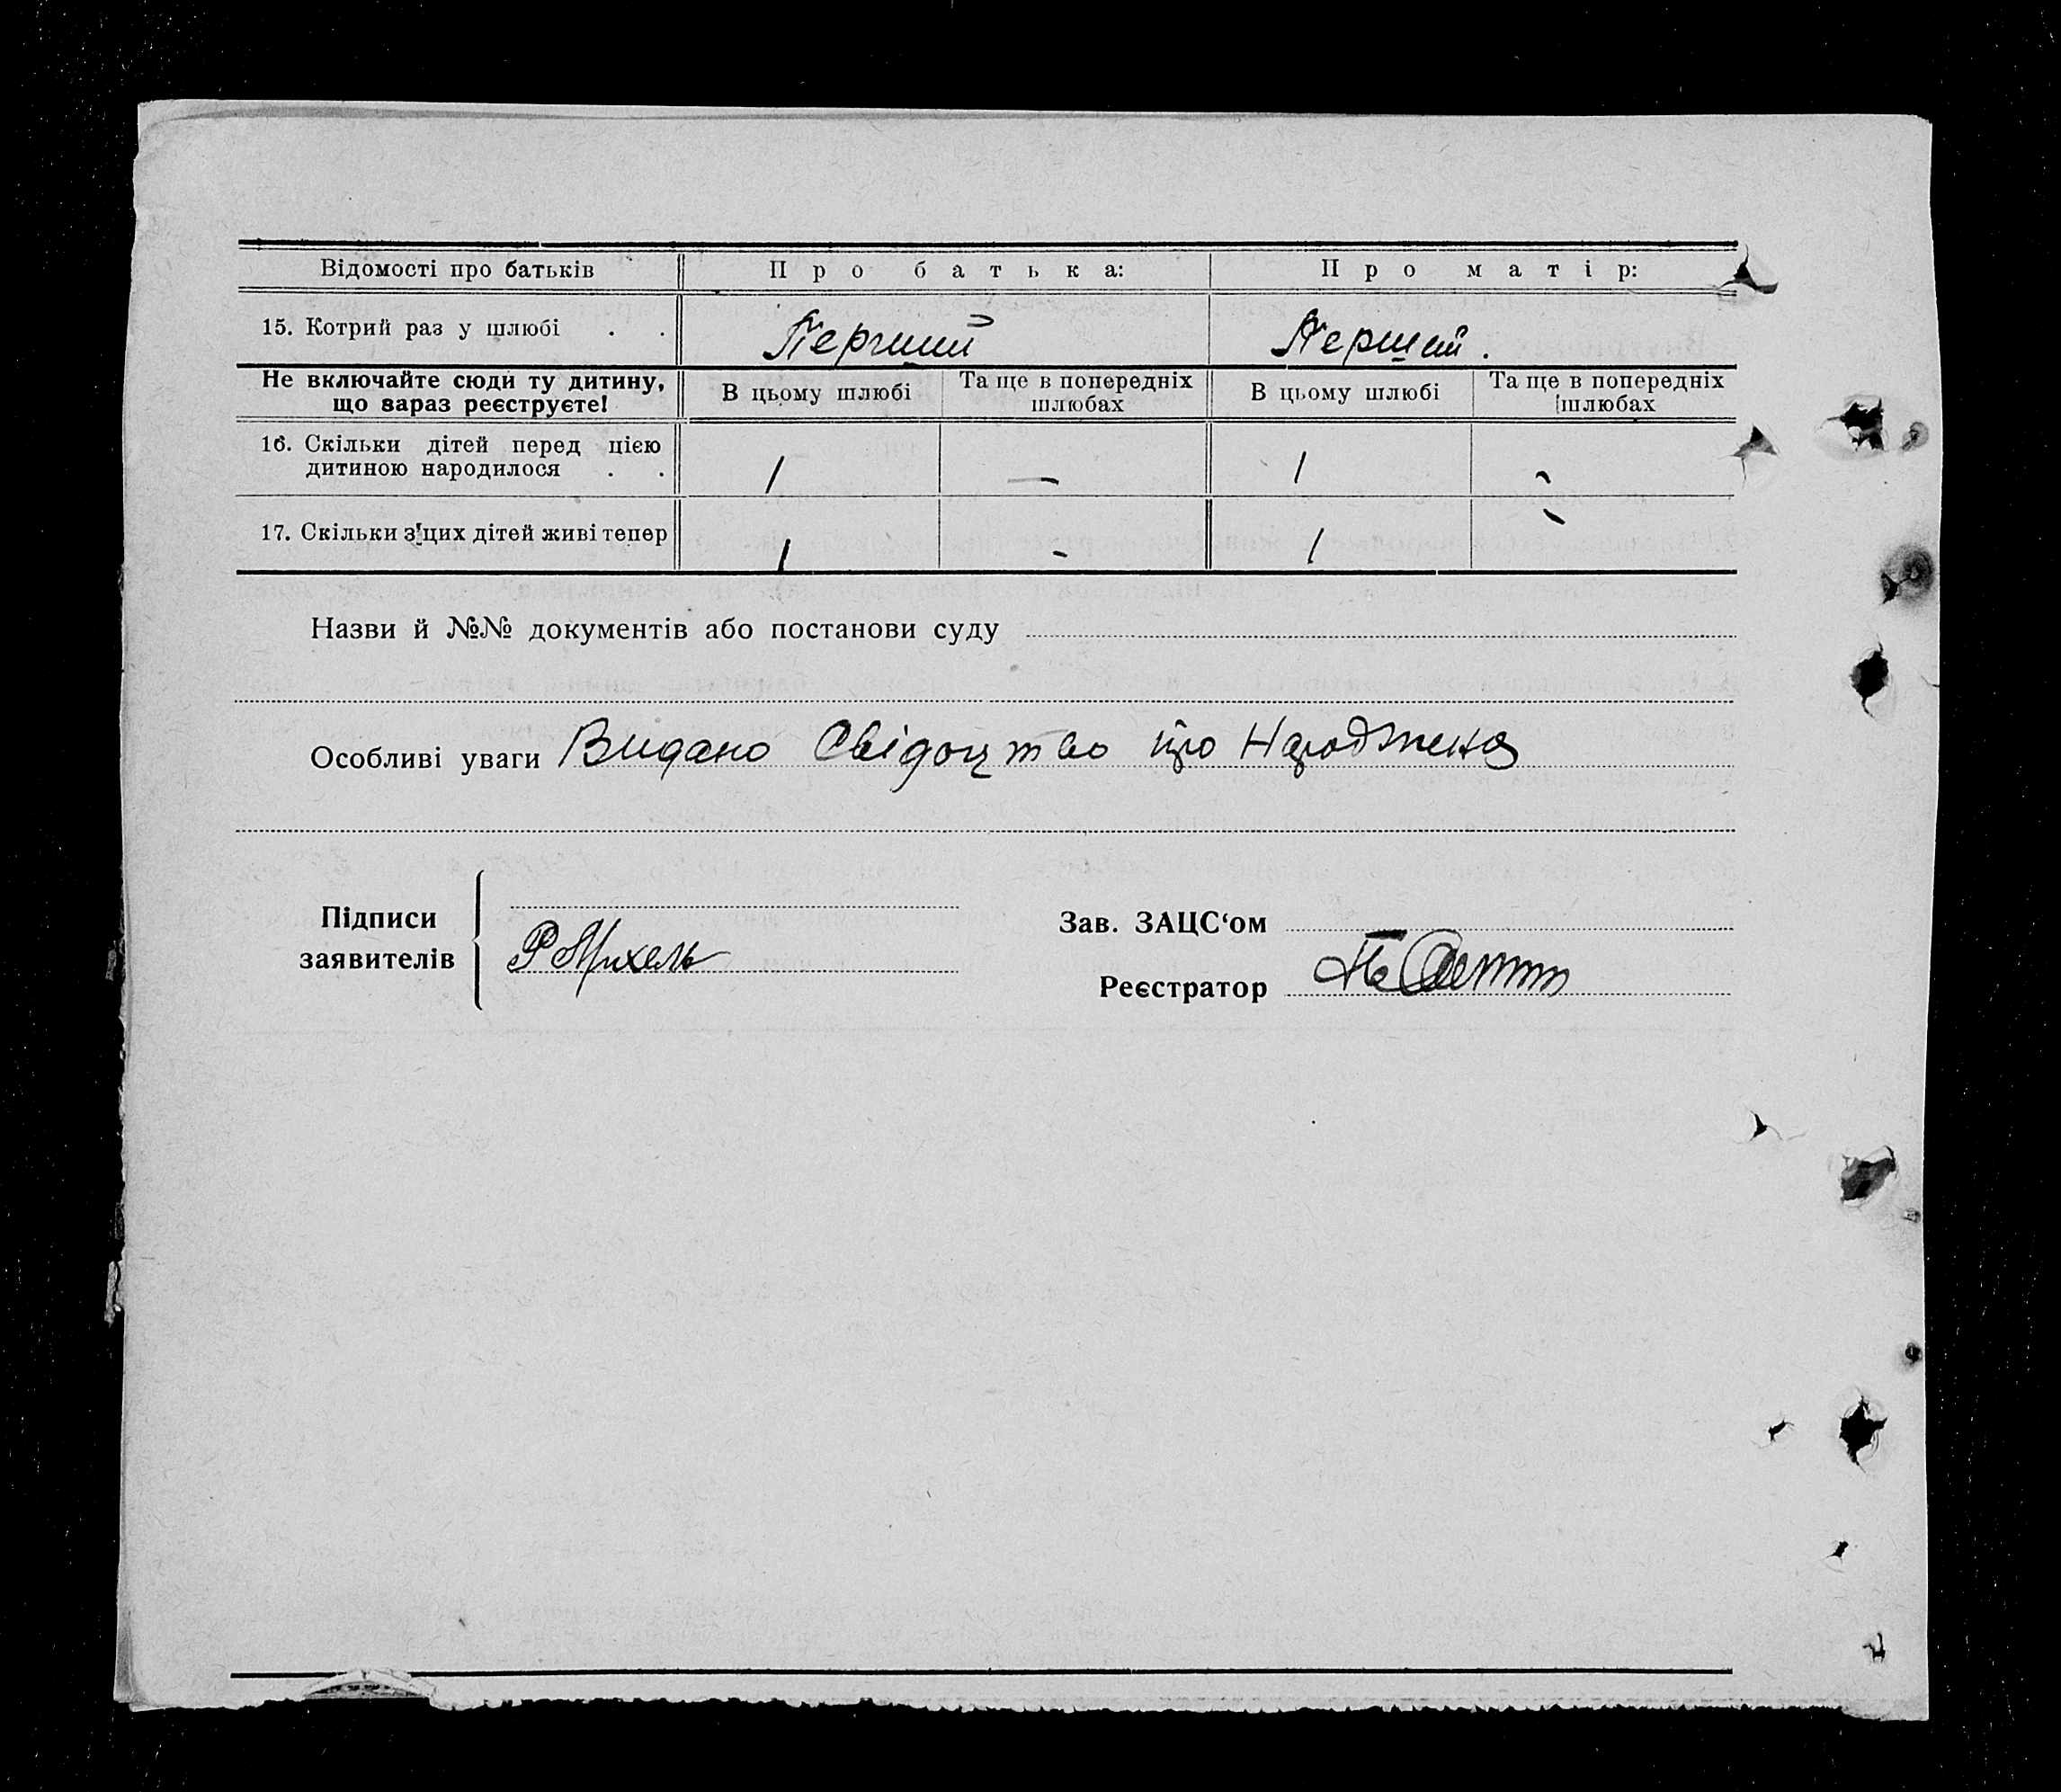 Відомості про батьків Про батька: Про матір:
15. Котрий раз у шлюбі . . Перший Перший.
Не включайте сюди ту дитину, що зараз реєструєте! В цьому шлюбі Та ще в попередніх шлюбах В цьому шлюбі Та ще в попередніх шлюбах
16. Скільки дітей перед цією
дитиною народилося . . 1 — 1 -
17. Скільки з цих дітей живі тепер 1 - 1 -
Назви й №№ документів або постанови суду
Особливі уваги Видано Свідоцтво про Народжена
Підписи
заявителів Р Михель
Зав. ЗАЦС‘ом
Реєстратор